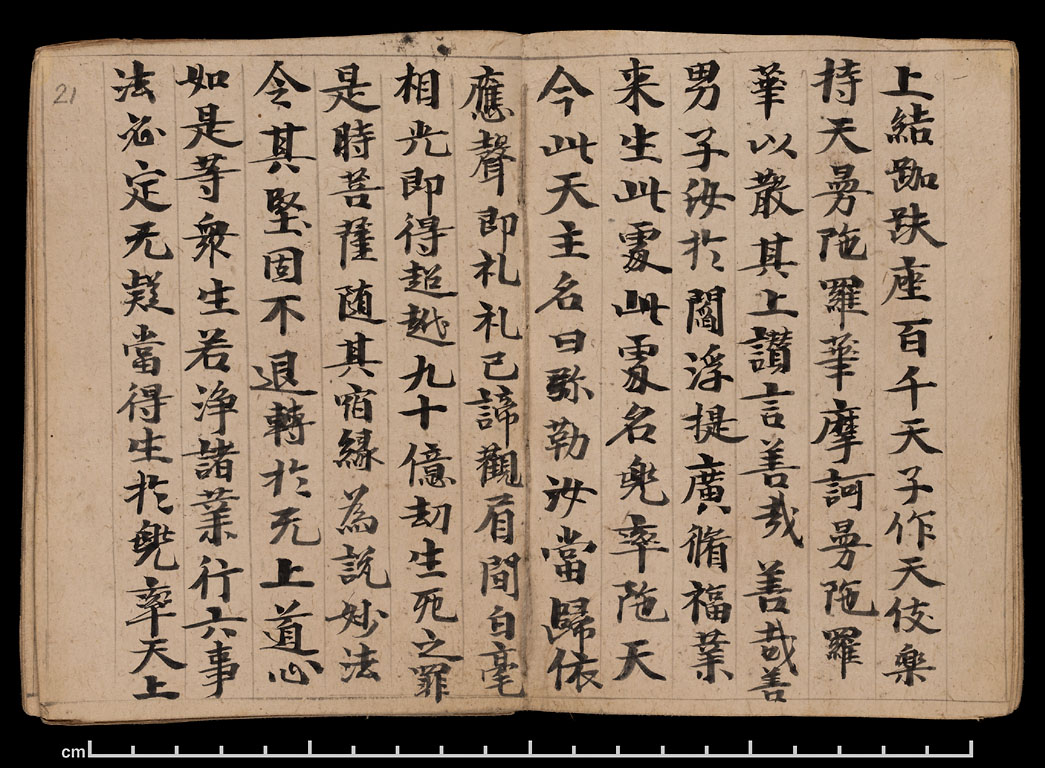 上結跏趺座百千天子作天伎樂
持天曼陁羅華摩訶曼陁羅
華以散其上讃言善哉善哉善
男子汝於閻浮提廣脩福業
来生此處此處名兜率陁天
今此天主名曰弥勒汝當歸依
應聲即礼礼已諦觀眉間白毫
相光即得超越九十億劫生死之罪
是時菩薩随其宿縁為説妙法
令其堅固不退轉於无上道心
如是等衆生若浄諸業行六事
法必定无疑當得生於兜率天上
21
cm